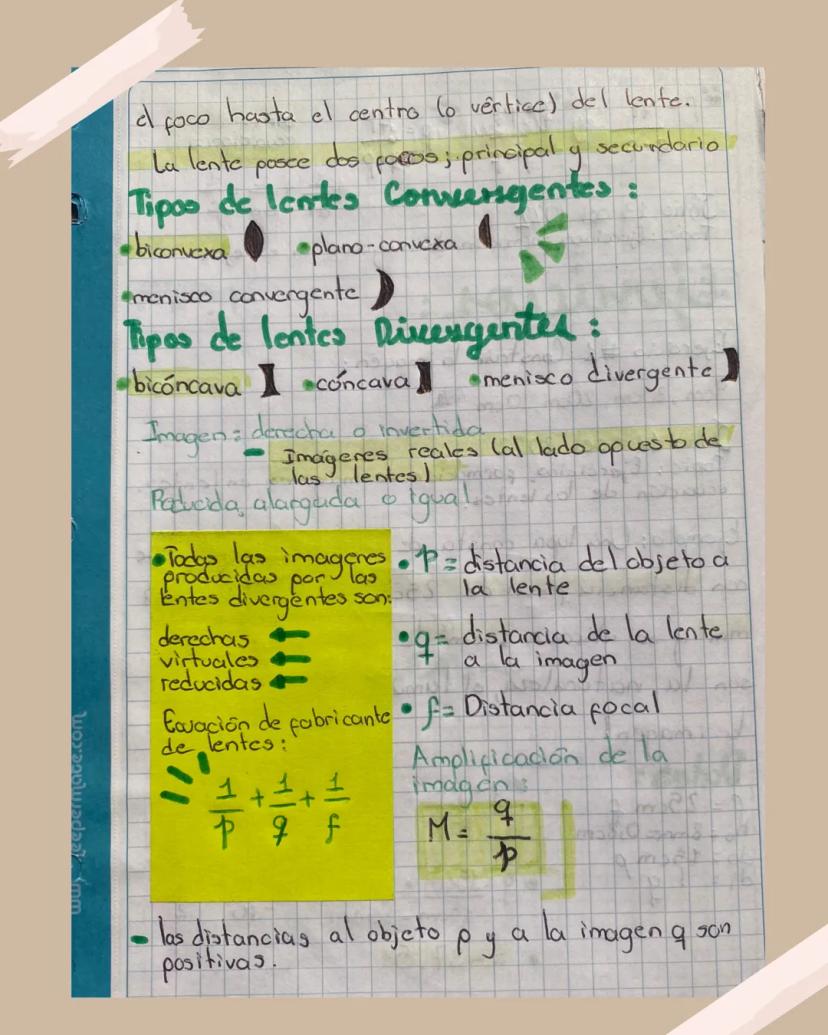 el foco hasta el centro (o vértice) del lente.
La lente posee dos focos; principal y secundario
Tipos de lentes Convergentes:
•biconvexa •plano-convexa
•menisco convergente
Tipos de lentes Divergentes:
•bicóncava •cóncava •menisco divergente
Imagen: derecha o invertida
- Imágenes reales (al lado opuesto de
las lentes)
Reducida, alargada o igual
•Todas las imagenes
producidas por las
lentes divergentes son:
derechas
virtuales
reducidas
Ecuación de fabricante
de lentes:
1/p + 1/q + 1/f
• p = distancia del objeto a
la lente
• q = distancia de la lente
a la imagen
• f = Distancia focal
Amplificación de la
imagen:
M = q/p
- las distancias al objeto p y a la imagen q son
positivas.